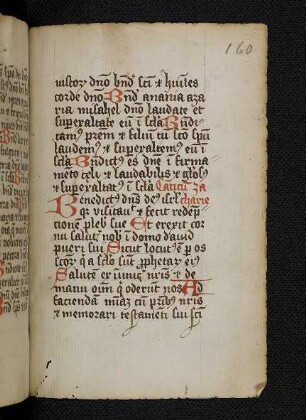 160
iustoꝝ dn̄o bn̄d sc̄i ⁊ hūiles
corde dn̄o Bn̄d anania aza
ria misahel dn̄o laudate et
superaltate eū ī sc̄la Bn̄di
camꝰ prem̄ ⁊ filiū cū sc̄o spū
laudemꝰ ⁊ superaltemꝰ eū ī
sc̄la Bn̄dictꝰ es dn̄e ī firma
meto celi ⁊ laudabilis ⁊ glosꝰ
⁊ superaltatꝰ ī sc̄la Canticū za
Benedictꝰ dn̄s deꝰ isrl̄ charie
qꝛ visitauit ⁊ fecit redēp
cionē pleb sue Et erexit cor
nu salutꝭ nob ī domo dauid
pueri sui Sicut locutꝰ ē ꝑ os
scoꝝ q̇ a sc̄lo sūt ꝓphetaꝝ eiꝰ
Salutē ex inīcꝭ nr̄is ⁊ de
manu oīm q̇ oderūt nos Ad
faciendā mīaꝫ cū pr̄ibꝰ nr̄is
⁊ memorari testamēti sui sc̄i